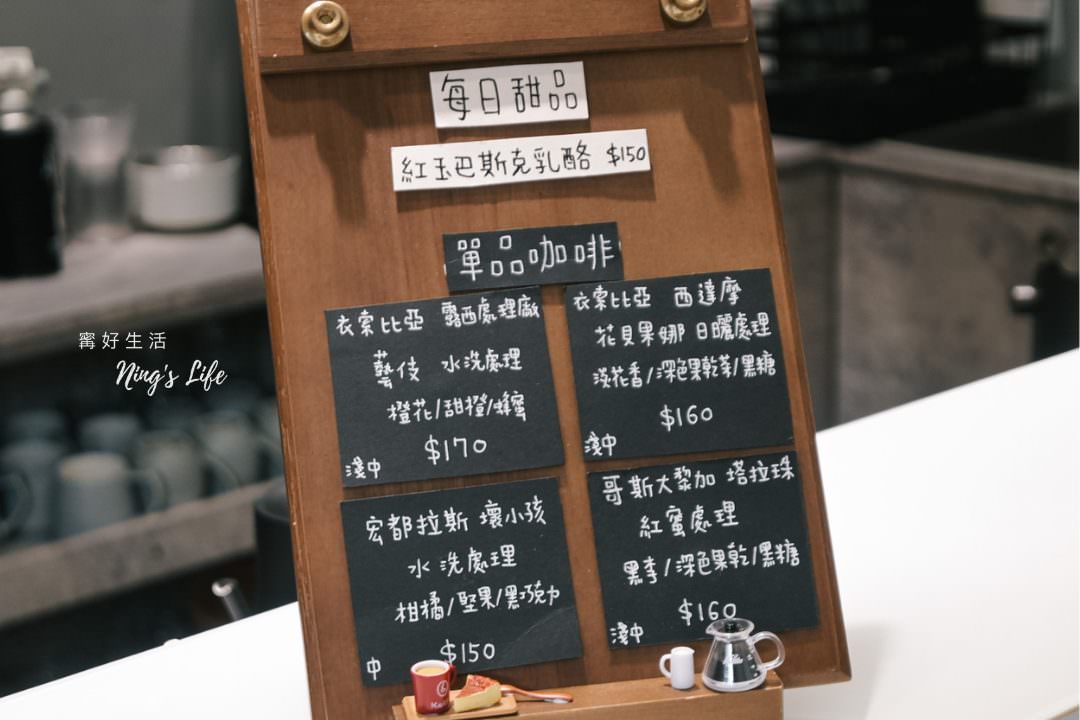 每日甜品
紅玉巴斯克乳酪 $150
單品咖啡
衣索比亞 露西處理廠
藝伎 水洗處理
橙花/甜橙/蜂蜜
$170
淺中
衣索比亞 西達摩
花貝果娜 日曬處理
淡花香/深色果乾莓/黑糖
$160
淺中
宏都拉斯 壞小孩
水洗處理
柑橘/堅果/黑巧克力
$150
中
哥斯大黎加 塔拉珠
紅蜜處理
黑李/深色果乾/黑糖
$160
淺中
甯好生活
Ning's Life